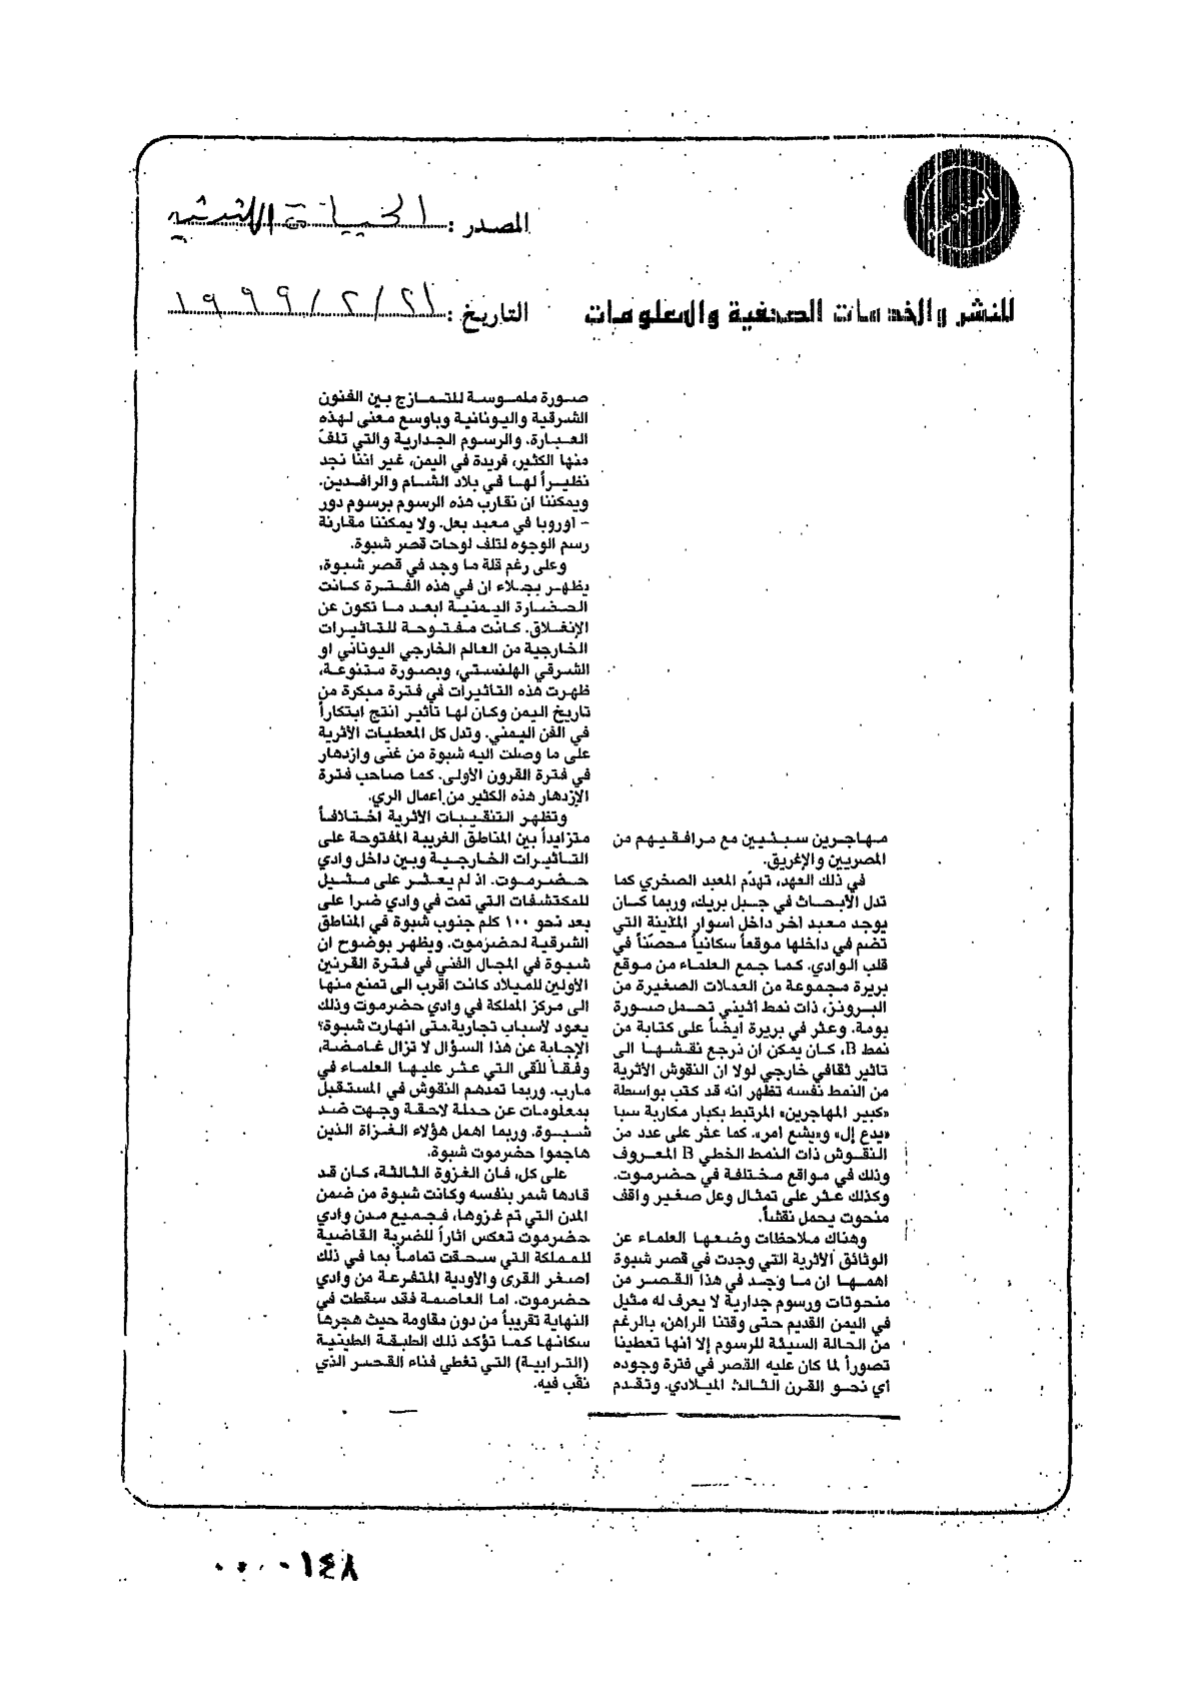 المصدر : الحياة اللندنية
للنشر والخدمات الصحفية والمعلومات
التاريخ : ٢١/٢/١٩٩٩
مهاجرين سبئيين مع مرافقيهم من
المصريين والإغريق.
في ذلك العهد، تهدّم المعبد الصخري كما
تدل الأبحاث في جبل بريك، وربما كان
يوجد معبد آخر داخل أسوار المدينة التي
تضم في داخلها موقعاً سكانياً محصّناً في
قلب الوادي. كما جمع العلماء من موقع
بريرة مجموعة من العملات الصغيرة من
البرونز، ذات نمط اثيني تحمل صورة
بومة. وعثر في بريرة ايضاً على كتابة من
نمط B، كان يمكن ان نرجع نقشها الى
تاثير ثقافي خارجي لولا ان النقوش الأثرية
من النمط نفسه تظهر انه قد كتب بواسطة
«كبير المهاجرين» المرتبط بكبار مكاربة سبا
«يدع إل» و«يشع امر». كما عثر على عدد من
النقوش ذات النمط الخطي B المعروف
وذلك في مواقع مختلفة في حضرموت.
وكذلك عثر على تمثال وعل صغير واقف
منحوت يحمل نقشاً.
وهناك ملاحظات وضعها العلماء عن
الوثائق الأثرية التي وجدت في قصر شبوة
اهمها ان ما وجد في هذا القصر من
منحوتات ورسوم جدارية لا يعرف له مثيل
في اليمن القديم حتى وقتنا الراهن، بالرغم
من الحالة السيئة للرسوم إلا أنها تعطينا
تصوراً لما كان عليه القصر في فترة وجوده
أي نحو القرن الثالث الميلادي. وتقدم
صورة ملموسة للتمازج بين الفنون
الشرقية واليونانية وباوسع معنى لهذه
العبارة. والرسوم الجدارية والتي تلفّ
منها الكثير، فريدة في اليمن، غير اننا نجد
نظيراً لها في بلاد الشام والرافدين.
ويمكننا ان نقارب هذه الرسوم برسوم دور
- اوروبا في معبد بعل. ولا يمكننا مقارنة
رسم الوجوه لتلف لوحات قصر شبوة.
وعلى رغم قلة ما وجد في قصر شبوة،
يظهر بجلاء ان في هذه الفترة كانت
الحضارة اليمنية ابعد ما تكون عن
الإنغلاق. كانت مفتوحة للتاثيرات
الخارجية من العالم الخارجي اليوناني او
الشرقي الهلنستي، وبصورة ستنوعة،
ظهرت هذه التاثيرات في فترة مبكرة من
تاريخ اليمن وكان لها تأثير انتج ابتكاراً
في الفن اليمني. وتدل كل المعطيات الأثرية
على ما وصلت اليه شبوة من غنى وازدهار
في فترة القرون الأولى. كما صاحب فترة
الإزدهار هذه الكثير من أعمال الري.
وتظهر التنقيبات الأثرية اختلافاً
متزايداً بين المناطق الغربية المفتوحة على
التاثيرات الخارجية وبين داخل وادي
حضرموت. اذ لم يعثر على مثيل
للمكتشفات التي تمت في وادي ضرا على
بعد نحو ١٠٠ كلم جنوب شبوة في المناطق
الشرقية لحضرموت. ويظهر بوضوح ان
شبوة في المجال الفني في فترة القرنين
الأولين للميلاد كانت اقرب الى تمنع منها
الى مركز المملكة في وادي حضرموت وذلك
يعود لاسباب تجارية.متى انهارت شبوة؟
الإجابة عن هذا السؤال لا تزال غامضة،
وفقاً للّقى التي عثر عليها العلماء في
مارب. وربما تمدهم النقوش في المستقبل
بمعلومات عن حملة لاحقة وجهت ضد
شبوة. وربما اهمل هؤلاء الغزاة الذين
هاجموا حضرموت شبوة.
على كل، فان الغزوة الثالثة، كان قد
قادها شمر بنفسه وكانت شبوة من ضمن
المدن التي تم غزوها، فجميع مدن وادي
حضرموت تعكس اثاراً للضربة القاضية
للمملكة التي سحقت تماماً بما في ذلك
اصغر القرى والأودية المتفرعة من وادي
حضرموت. اما العاصمة فقد سقطت في
النهاية تقريباً من دون مقاومة حيث هجرها
سكانها كما تؤكد ذلك الطبقة الطينية
(الترابية) التي تغطي فناء القصر الذي
نقّب فيه.
٠٠٠٠١٤٨